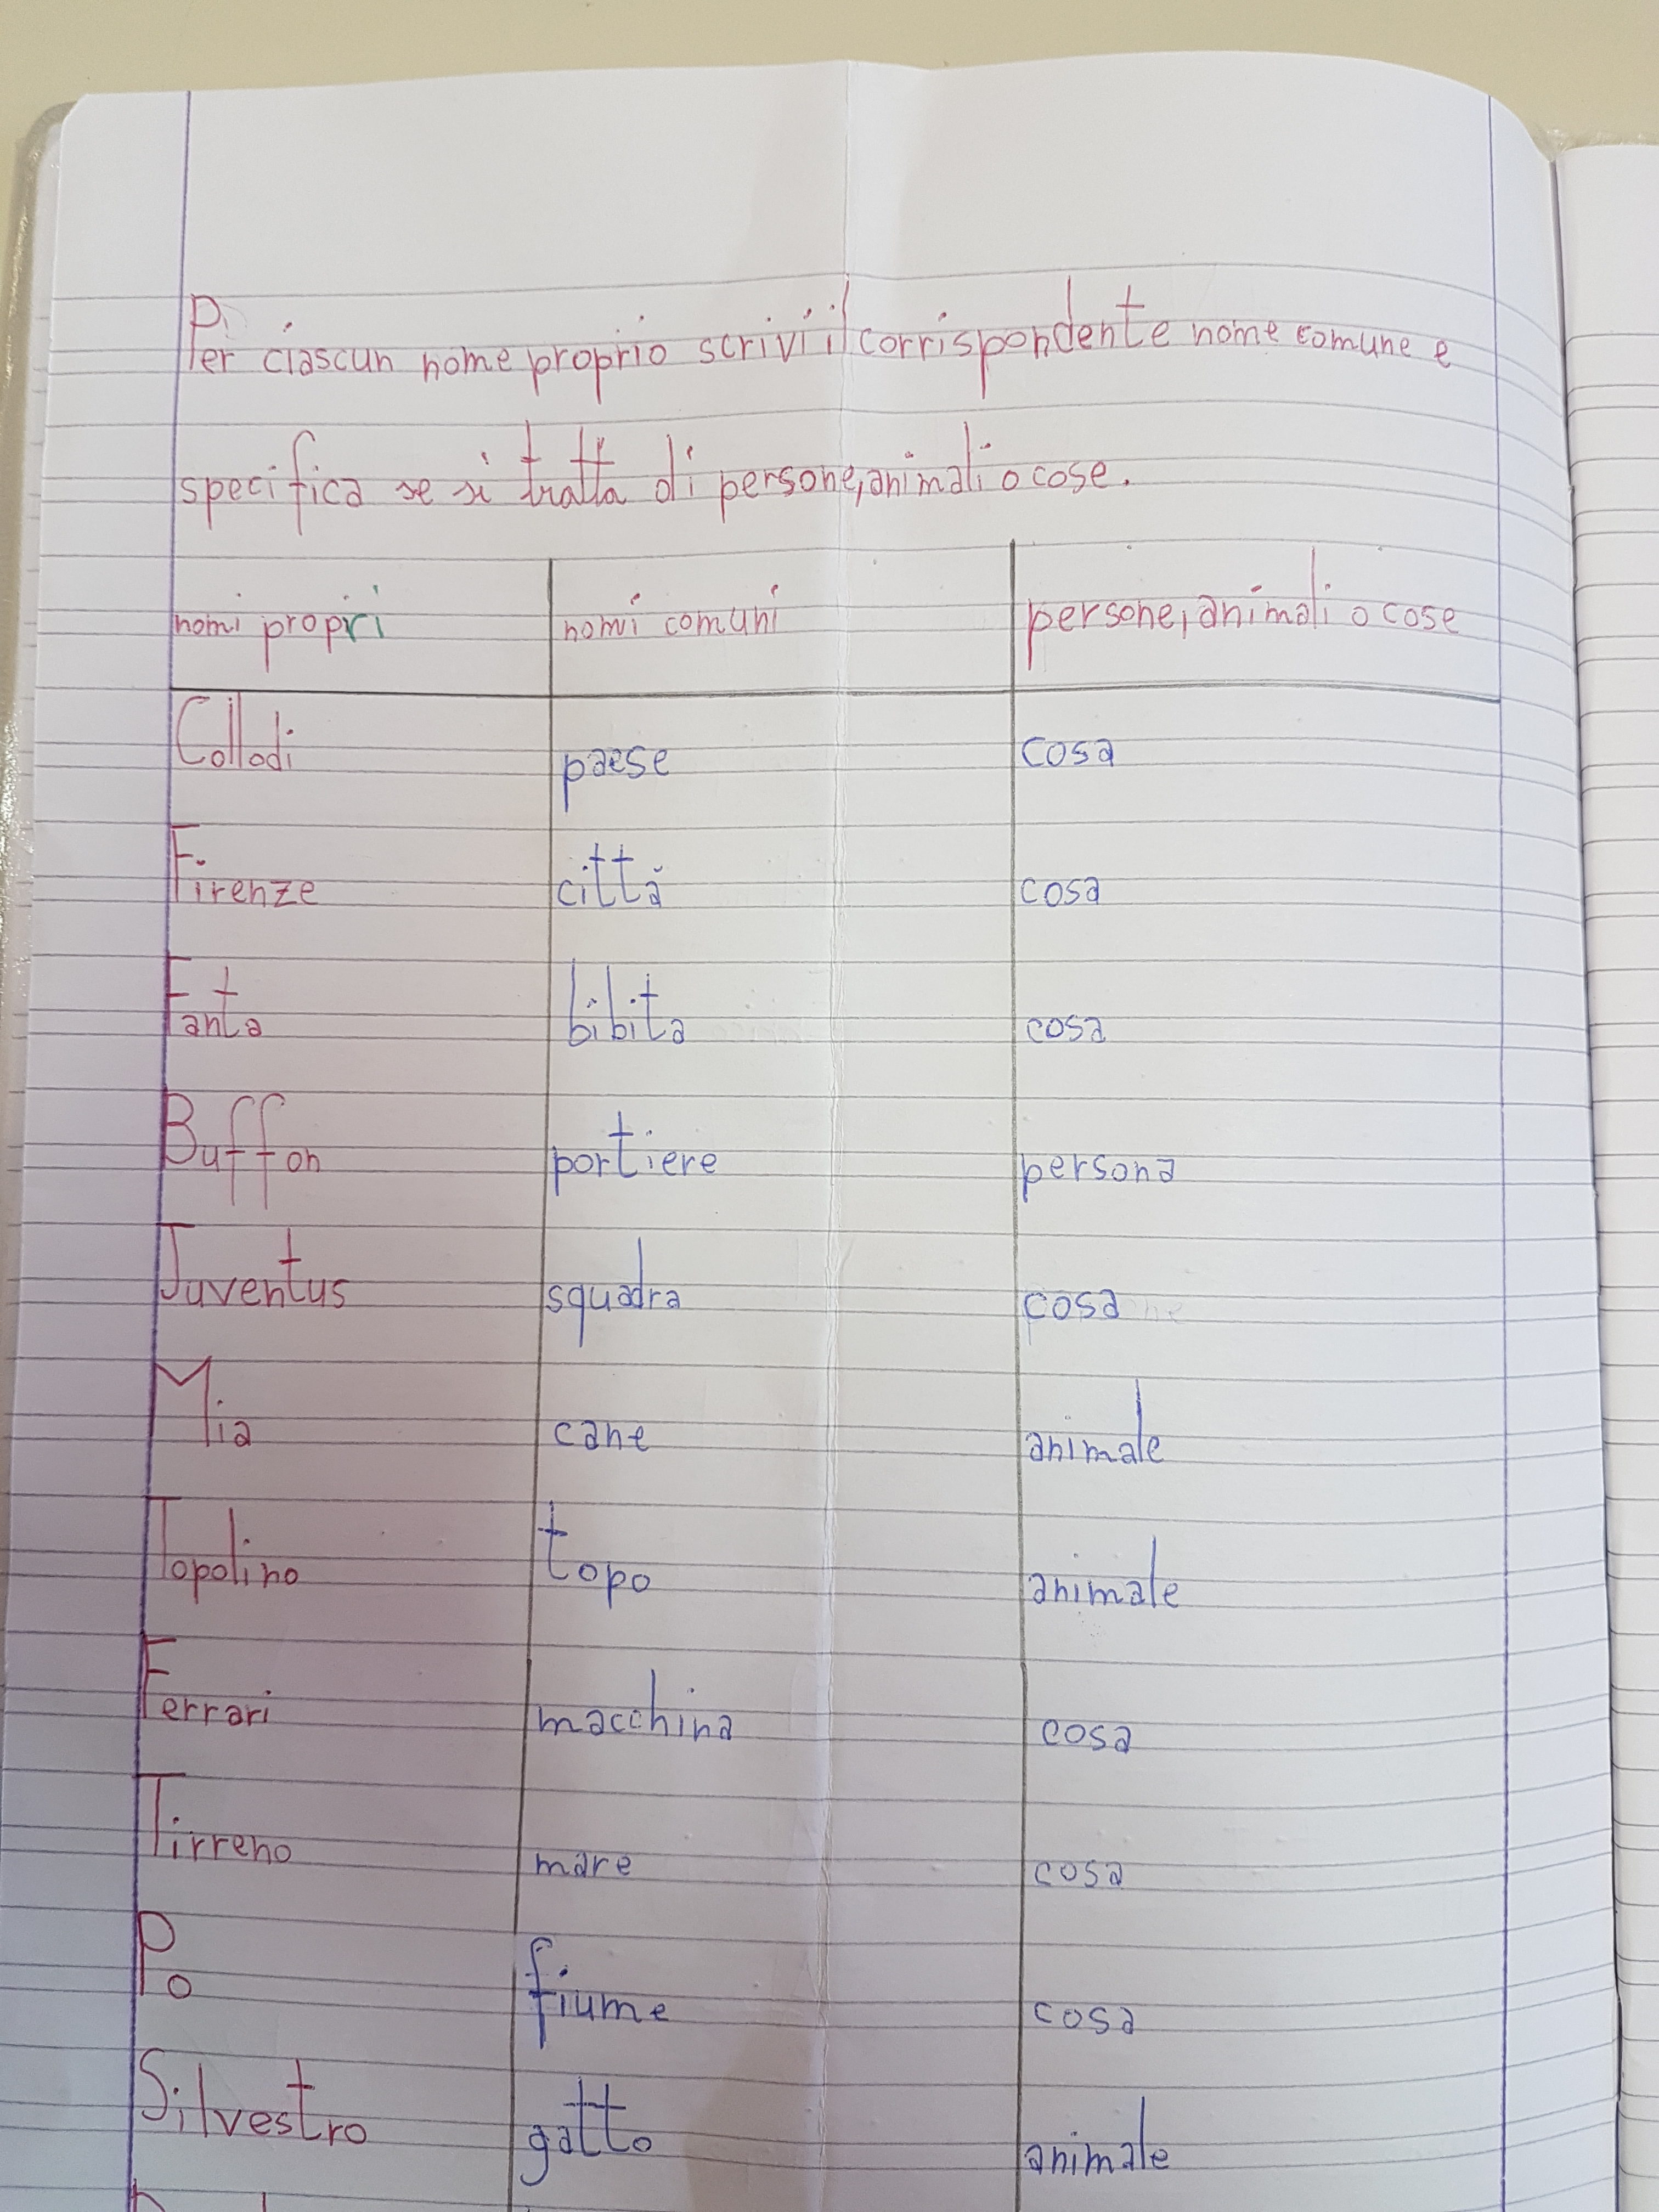 Per ciascun nome proprio scrivi il corrispondente nome comune e
specifica se si tratta di persone, animali o cose.
nomi propri nomi comuni persone, animali o cose
Collodi paese cosa
Firenze città cosa
Fanta bibita cosa
Buffon portiere persona
Juventus squadra cosa
Mia cane animale
Topolino topo animale
Ferrari macchina cosa
Tirreno mare cosa
Po fiume cosa
Silvestro gatto animale